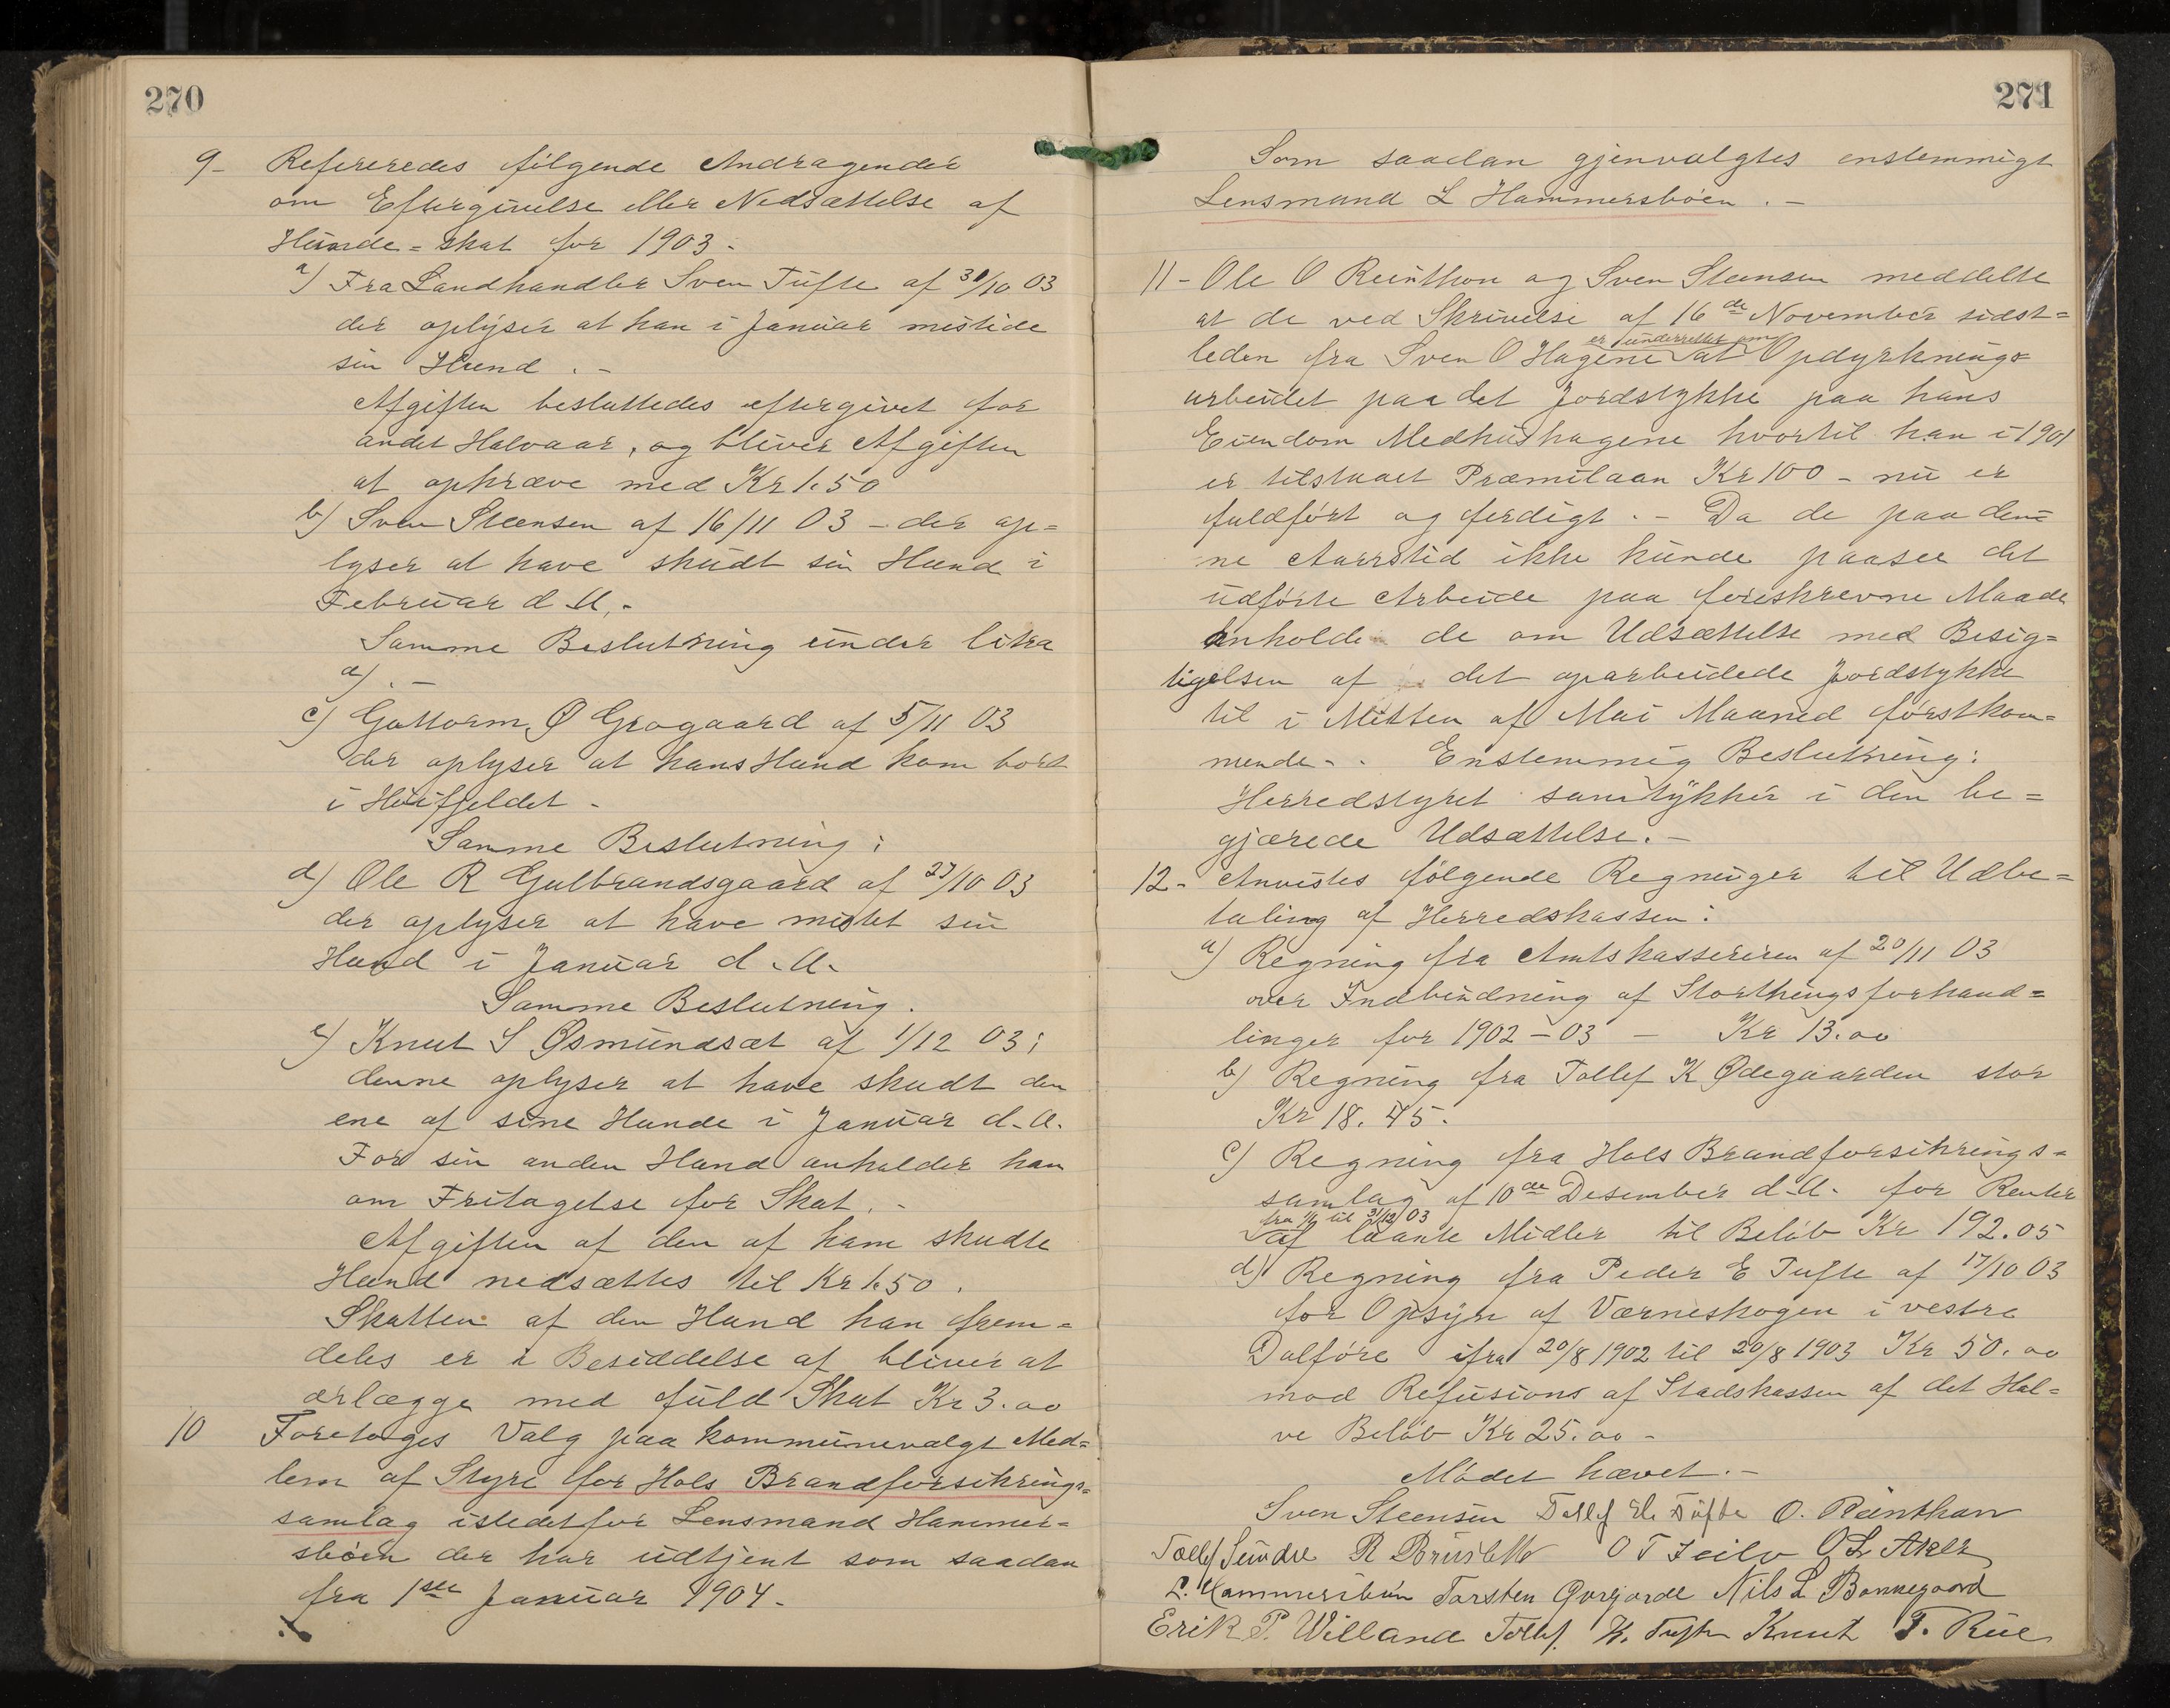 270
9- Refereredes følgende Andragender
om Eftergivelse eller Nedsættelse af
Hunde=skat for 1903.
a) Fra Landhandler Sven Tufte af 30/10 03
der oplyser at han i Januar mistede
sin Hund. -
Afgiften besluttedes eftergivet for
andet Halvaar, og bliver Afgiften
at opkræve med Kr 1.50
b) Sven Steensen af 16/11 03 - der op=
lyser at have skudt sin Hund i
Februar d.A. -
Samme Beslutning under litra
a). -
c) Guttorm Ø Grogaard af 5/11 03
der oplyser at hans Hund kom bort
i Høifjeldet -
Samme Beslutning:
d) Ole R Gulbrandsgaard af 27/10 03
der oplyser at have mistet sin
Hund i Januar d.A.
Samme Beslutning.
e) Knut S Øsmundsæt af 1/12 03;
denne oplyser at have skudt den
ene af sine Hunde i Januar d.A.
For sin anden Hund anholder han
om Fritagelse for Skat. -
Afgiften af den af ham skudte
Hund nedsættes til Kr 1.50.
Skatten af den Hund han frem=
deles er i Besiddelse af bliver at
erlægge med fuld Skat Kr 3.00
10 Foretoges Valg paa kommunevalgt Med=
lem af Styre for Hols Brandforsikrings=
samlag istedetfor Lensmand Hammer=
sbøen der har udtjent som saadan
fra 1ste Januar 1904.
271
Som saadan gjenvalgtes enstemmigt
Lensmand L Hammersbøen. -
11- Ole O Reinthon og Sven Steensen meddelte
at de ved Skrivelse af 16de November sidst=
er underrettet om
leden fra Sven O Hagene at Opdyrknings=
arbeidet paa det Jordstykke paa hans
Eiendom Medhushagene hvortil han i 1901
er tilstaaet Præmilaan Kr 100 - nu er
fuldført og ferdigt. - Da de paa den=
ne Aarstid ikke kunde paasee det
udførte Arbeide paa foreskrevne Maade
anholde de om Udsættelse med Besig=
tigelsen af det oparbeidede Jordstykke
til i Midten af Mai Maaned førstkom=
mende. Enstemmig Beslutning:
Herredstyret samtykker i den be=
gjærede Udsættelse. -
12- Anvistes følgende Regninger til Udbe=
taling af Herredskassen:
a) Regning fra Amtskassereren af 20/11 03
over Indbindning af Storthingsforhand=
linger for 1902-03 - Kr 13.00
b) Regning fra Tollef K Ødegaarden stor
Kr 18.45.
c) Regning fra Hols Brandforsikrings=
samlag af 10de Desember d.A. for Renter
fra 1/7 til 31/12 03
af laante Midler til Beløb Kr 192.05
d) Regning fra Peder E Tufte af 17/10 03
for Opsyn af Værneskogen i vestre
Dalføre ifra 20/8 1902 til 20/8 1903 Kr 50.00
mod Refusions af Stadskassen af det Hal=
ve Beløb Kr 25.00 -
Mødet hævet. -
Sven Steensen Tollef Tufte O. Reinthon
Tollef Sundre R O T L
L. Hammersbøen Torsten Nils L Bonnegaard
Erik P. Villand Tollef K. Tufte Knut T. Rue